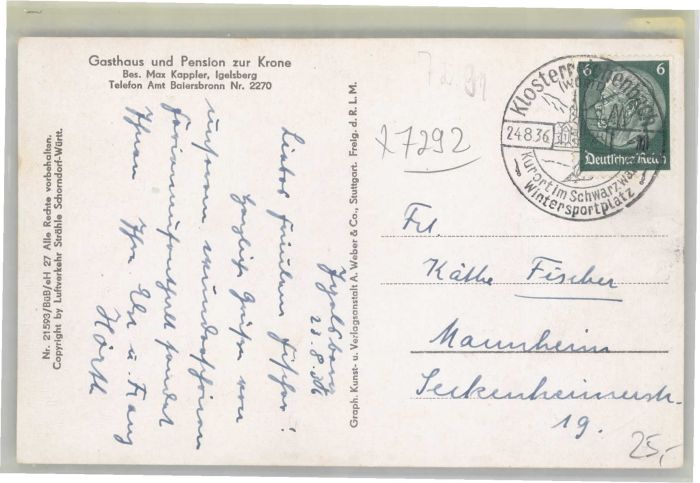 Gasthaus und Pension zur Krone
Bes. Max Kappler, Igelsberg
Telefon Amt Baiersbronn Nr. 2270
Nr. 21593/BüB/eH 27 Alle Rechte vorbehalten.
Copyright by Luftverkehr Strähle Schorndorf-Württ.
Igelsberg
23.8.36
Liebes Fräulein Fischer!
Herzliche Grüße von
unserem wunderschönen
Ferienaufenthalt sendet
Ihnen Ihre Else u. Franz
Hörth
Graph. Kunst- u. Verlagsanstalt A. Weber & Co., Stuttgart. Freig. d. R. L. M.
x7292
Klosterreichenbach
(Württ)
24.8.36
Kurort im Schwarzwald
Wintersportplatz
6 6
Deutsches Reich
Frl.
Käthe Fischer
Mannheim
Seckenheimerstr.
19.
25,-